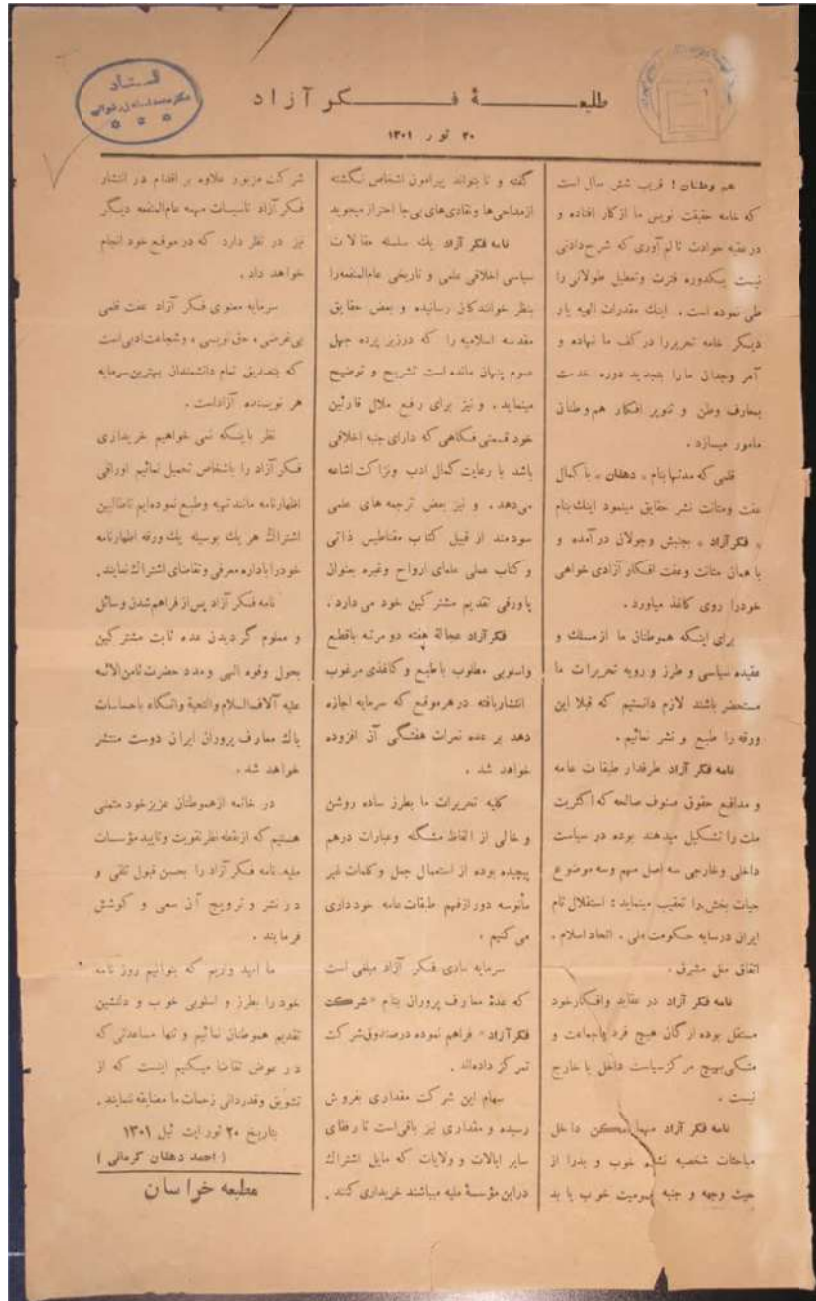 طلیعهٔ فکر آزاد
۲۰ ثور ۱۳۰۱
استاد
هم وطنان ! قریب شش سال است
که خامه حقیقت نویس ما از کار افتاده و
در عقبه حوادث تالم آوری که شرح دادنی
نیست یکدوره فترت و تعطیل طولانی را
طی نموده است . اینك مقدرات الهیه بار
دیگر خامه تحریر را در کف ما نهاده و
آمر وجدان ما را بتجدید دوره خدمت
بمعارف وطن و تنویر افکار هم وطنانی
مامور میسازد .
قلمی که مدتها بنام « دهقان » با کمال
عفت ومتانت نشر حقایق مینمود اینك بنام
« فکر آزاد » بجنبش وجولان در آمده و
با همان متانت وعفت افکار آزادی خواهی
خودرا روی کاغذ میاورد .
برای اینکه هموطنان ما از مسلك و
عقیده سیاسی و طرز و رویه تحریرات ما
مستحضر باشند لازم دانستیم که قبلا این
ورقه را طبع و نشر نمائیم .
نامه فکر آزاد طرفدار طبقات عامه
و مدافع حقوق صنوف صالحه که اکثریت
ملت را تشکیل میدهند بوده در سیاست
داخلی وخارجی سه اصل مهم وسه موضوع
حیات بخش را تعقیب مینماید : استقلال تام
ایران در سایه حکومت ملی . اتحاد اسلام .
اتفاق ملل مشرق .
نامه فکر آزاد در عقاید وافکار خود
مستقل بوده ارگان هیچ فرد یاجماعت و
متکی بهیچ مرکز سیاست داخل یا خارج
نیست .
نامه فکر آزاد مهما ممکن داخل
مباحثات شخصیه نشده خوب و بد را از
حیث وجهه و جنبه عمومیت خوب یا بد
گفته و تا بتواند پیرامون اشخاص نگشته
از مداحی ها و نقادی های بی جا احتراز میجوید
نامه فکر آزاد یك سلسله مقالات
سیاسی اخلاقی علمی و تاریخی عام المنفعه را
بنظر خوانندگان رسانیده و بعض حقایق
مقدسه اسلامیه را که در زیر پرده جهل
عموم پنهان مانده است تشریح و توضیح
مینماید . و نیز برای رفع ملال قارئین
خود قسمتی فکاهی که دارای جنبه اخلاقی
باشد با رعایت کمال ادب ونزاکت اشاعه
می دهد . و نیز بعض ترجمه های علمی
سودمند از قبیل کتاب مقناطیس ذاتی
و کتاب عملی علمای ارواح وغیره بعنوان
پاورقی تقدیم مشترکین خود می دارد .
فکر آزاد عجالة هفته دو مرتبه باقطع
واسلوبی مطلوب باطبع و کاغذی مرغوب
انتشار یافته در هر موقع که سرمایه اجازه
دهد بر عده نمرات هفتگی آن افزوده
خواهد شد .
کلیه تحریرات ما بطرز ساده روشن
و خالی از الفاظ مشگله وعبارات درهم
پیچیده بوده از استعمال جمل وکلمات غیر
مأنوسه دور از فهم طبقات عامه خودداری
می کنیم .
سرمایه مادی فکر آزاد مبلغی است
که عدهٔ معارف پروران بنام «شرکت
فکر آزاد» فراهم نموده در صندوق شرکت
تمرکز داده اند .
سهام این شرکت مقداری بفروش
رسیده و مقداری نیز باقی است تا رفقای
سایر ایالات و ولایات که مایل اشتراك
در این مؤسسهٔ ملیه میباشند خریداری کنند .
شرکت مزبور علاوه بر اقدام در انتشار
فکر آزاد تاسیسات مهمه عام المنفعه دیگر
نیز در نظر دارد که در موقع خود انجام
خواهد داد .
سرمایه معنوی فکر آزاد عفت قلمی
بی غرضی ، حق نویسی ، و شجاعت ادبی است
که بتصدیق تمام دانشمندان بهترین سرمایه
هر نویسنده آزاد است .
نظر باینکه نمی خواهیم خریداری
فکر آزاد را باشخاص تحمیل نمائیم اوراقی
اظهارنامه مانند تهیه وطبع نموده ایم تاطالبین
اشتراك هر یك بوسیله یك ورقه اظهارنامه
خود را باداره معرفی وتقاضای اشتراك نمایند .
نامه فکر آزاد پس از فراهم شدن وسائل
و معلوم گردیدن عده ثابت مشترکین
بحول وقوه الهی و مدد حضرت ثامن الائمه
علیه آلاف السلام والتحیة واتکاء باحساسات
پاك معارف پروران ایران دوست منتشر
خواهد شد .
در خاتمه از هموطنان عزیز خود متمنی
هستیم که از نقطه نظر تقویت وتایید مؤسسات
ملیه نامه فکر آزاد را بحسن قبول تلقی و
در نشر و ترویج آن سعی و کوشش
فرمایند .
ما امید واریم که بتوانیم روز نامه
خود را بطرز و اسلوبی خوب و دلنشین
تقدیم هموطنان نمائیم و تنها مساعدتی که
در عوض تقاضا میکنیم اینست که از
تشویق وقدردانی زحمات ما مضایقه ننمایند .
بتاریخ ۲۰ ثور ایت ئیل ۱۳۰۱
( احمد دهقان کرمانی )
مطبعه خراسان